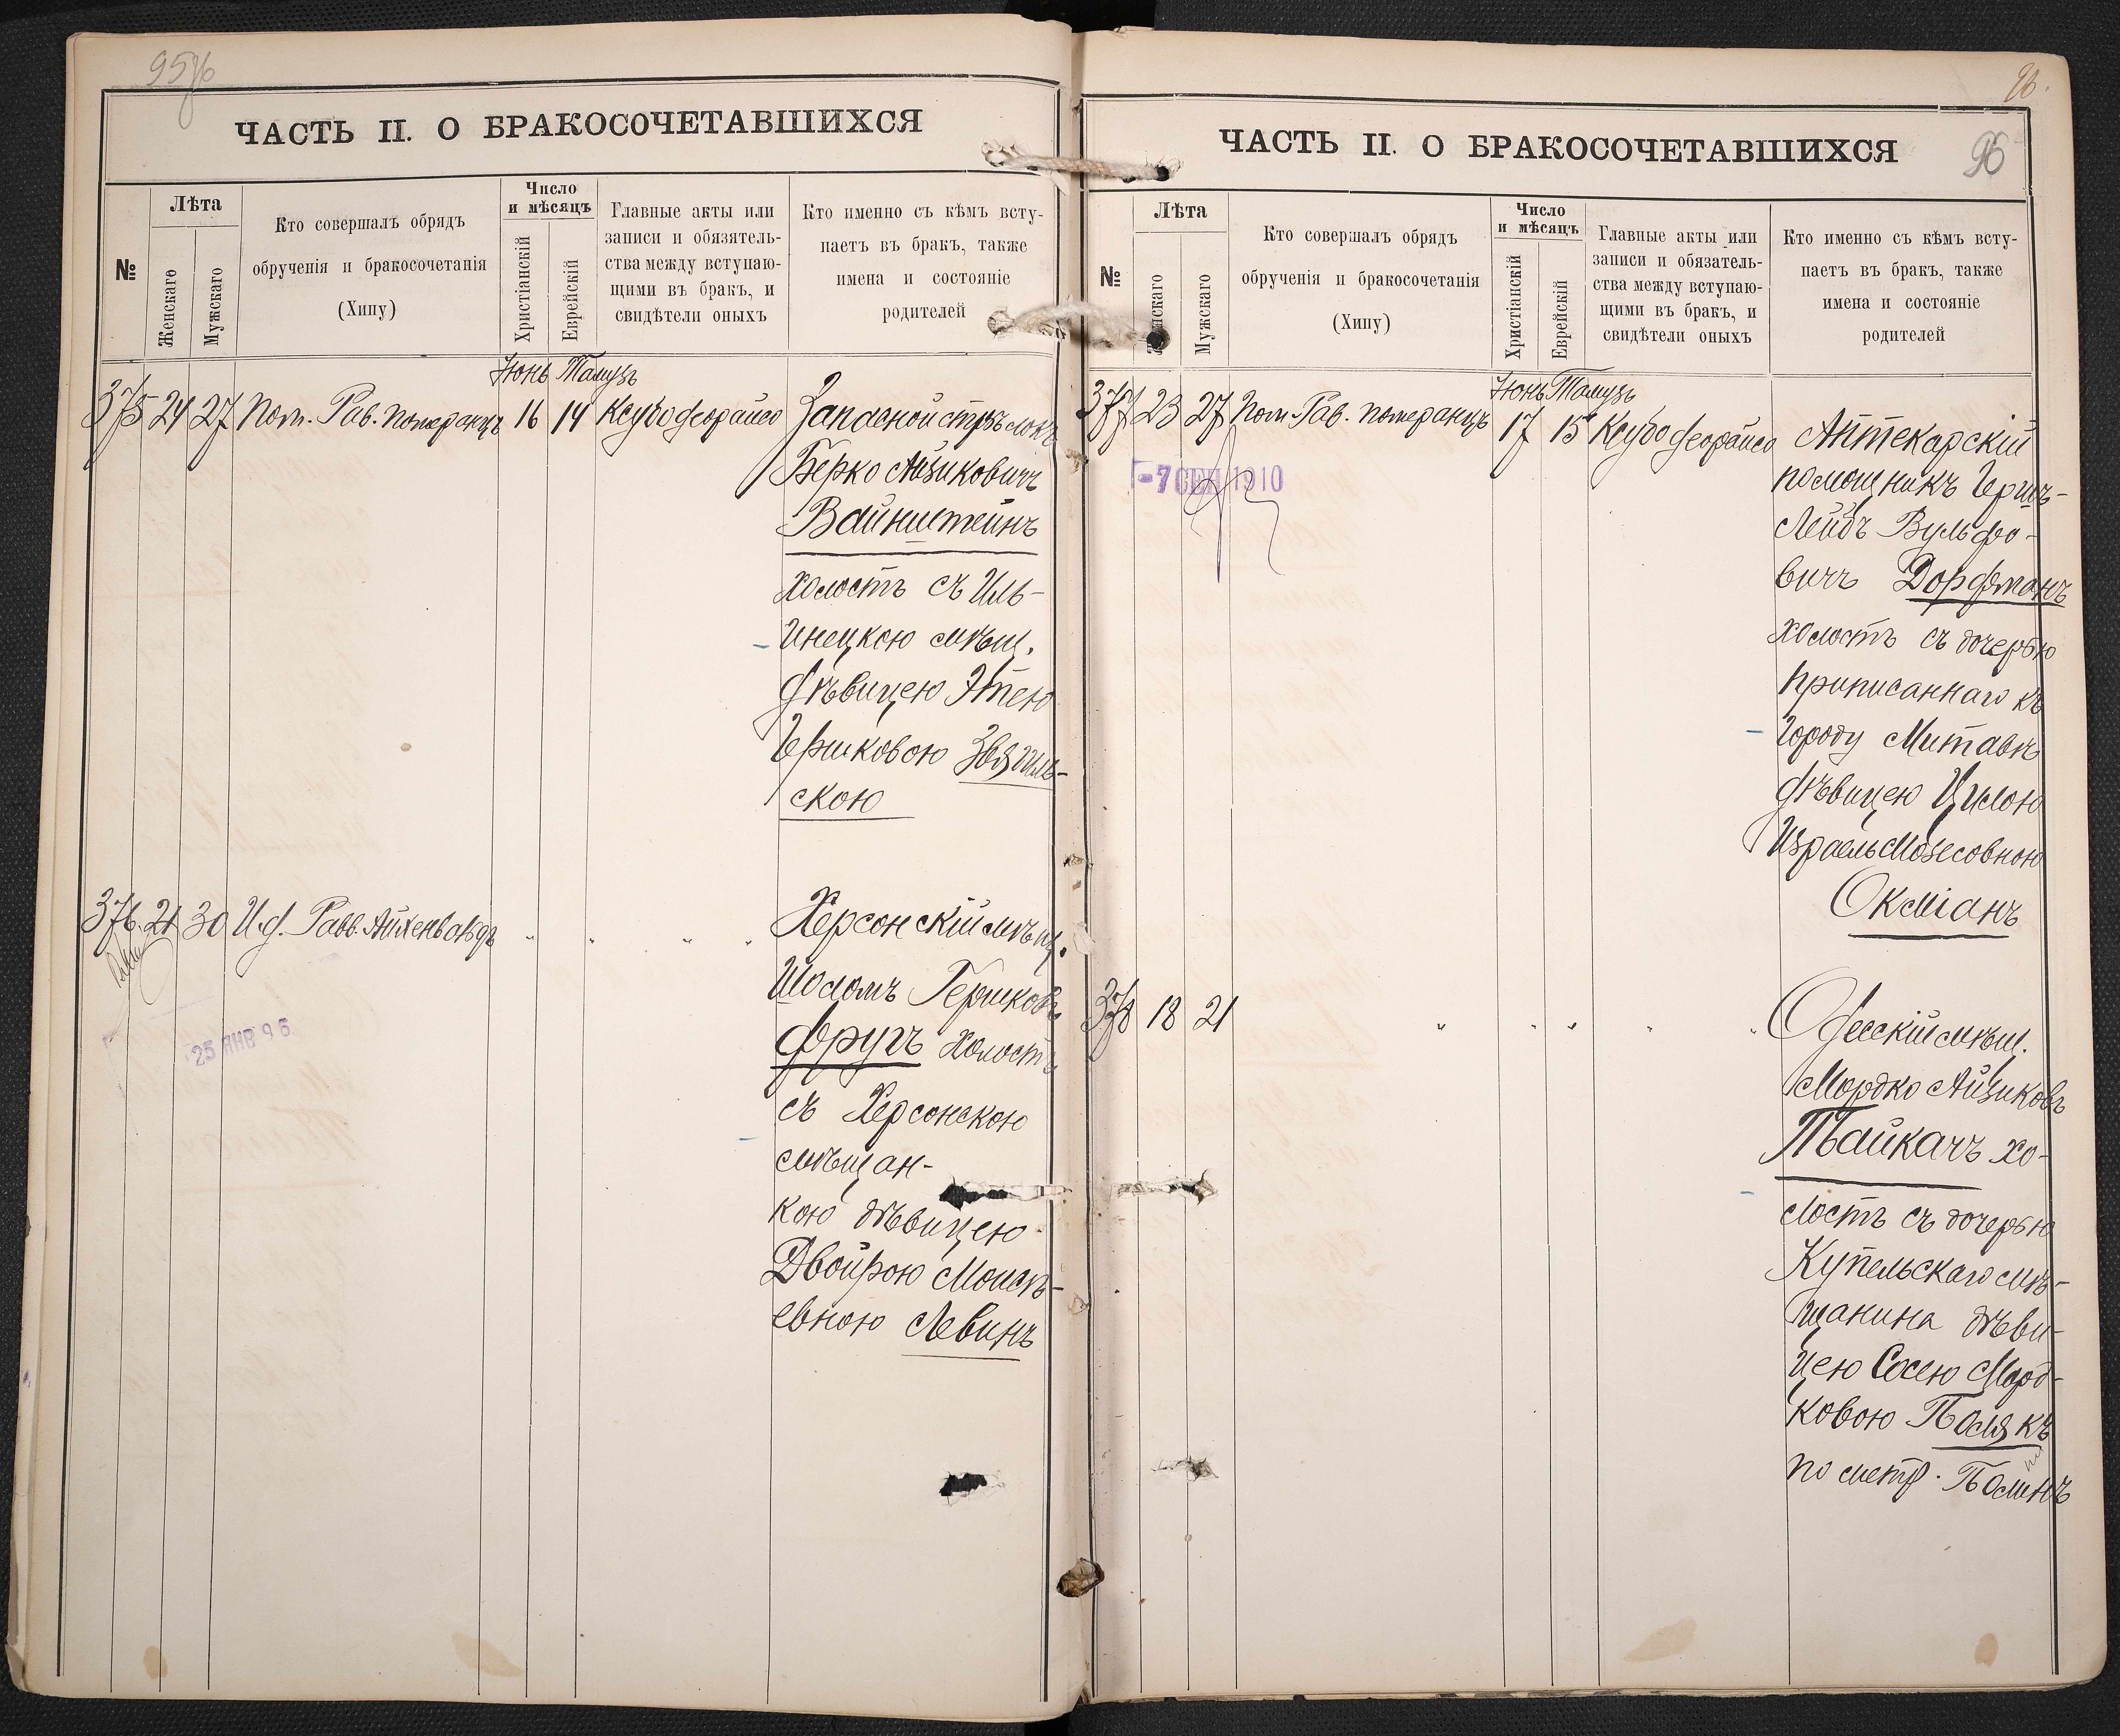 95
ЧАСТЬ II. О БРАКОСОЧЕТАВШИХСЯ
№
Лѣта
Женскаго
Мужскаго
Кто совершалъ обрядъ
обрученія и бракосочетанія
(Хипу)
Число
и мѣсяцъ
Христіанскій
Еврейскій
Главные акты или
записи и обязятель-
ства между вступаю-
щими въ бракъ, и
свидѣтели оныхъ
Кто именно съ кѣмъ всту-
паетъ въ бракъ, также
имена и состояніе
родителей
Іюнь Тамузъ
375 24 27 Пом. Рав. Померанцъ 16 14 Ксубо деорайсо Запасной стрѣлокъ
Берко Айзиковичъ
Вайнштейнъ
холостъ съ Иль-
инецкою мѣщ.
дѣвицею Этею
Гершковою Звягиль-
скою
376. 21 30 И.д. Равв. Айхенвальдъ " " " " Херсонскій мѣщ.
Шоломъ Гершковъ
Фругъ холостъ
съ Херсонскою
мѣщан-
кою дѣвицею
Двойрою Моисѣ-
евною Левинъ
25 ЯНВ 96
96.
96
ЧАСТЬ II. О БРАКОСОЧЕТАВШИХСЯ
№
Лѣта
Женскаго
Мужскаго
Кто совершалъ обрядъ
обрученія и бракосочетанія
(Хипу)
Число
и мѣсяцъ
Христіанскій
Еврейскій
Главные акты или
записи и обязатель-
ства между вступаю-
щими въ бракъ, и
свидѣтели оныхъ
Кто именно съ кѣмъ всту-
паетъ въ бракъ, также
имена и состояніе
родителей
Іюнь Тамузъ
377 23 27 Пом. Рав. Померанцъ 17 15 Ксубо деорайсо Аптекарскій
помощникъ Гершъ-
Лейбъ Вульфо-
вичъ Дорфманъ
холостъ съ дочерью
приписаннаго къ
городу Митавѣ
дѣвицею Цилою
Израель Мозесовною
Окміанъ
-7 СЕН 1910
378 18 21 " " " " " Одесскій мѣщ.
Мордко Айзиковъ
Пайкачъ хо-
лостъ съ дочерью
Купельскаго мѣ-
щанина дѣви-
цею Сосею Морд-
ковою Полякъ
по метр. Полинъ